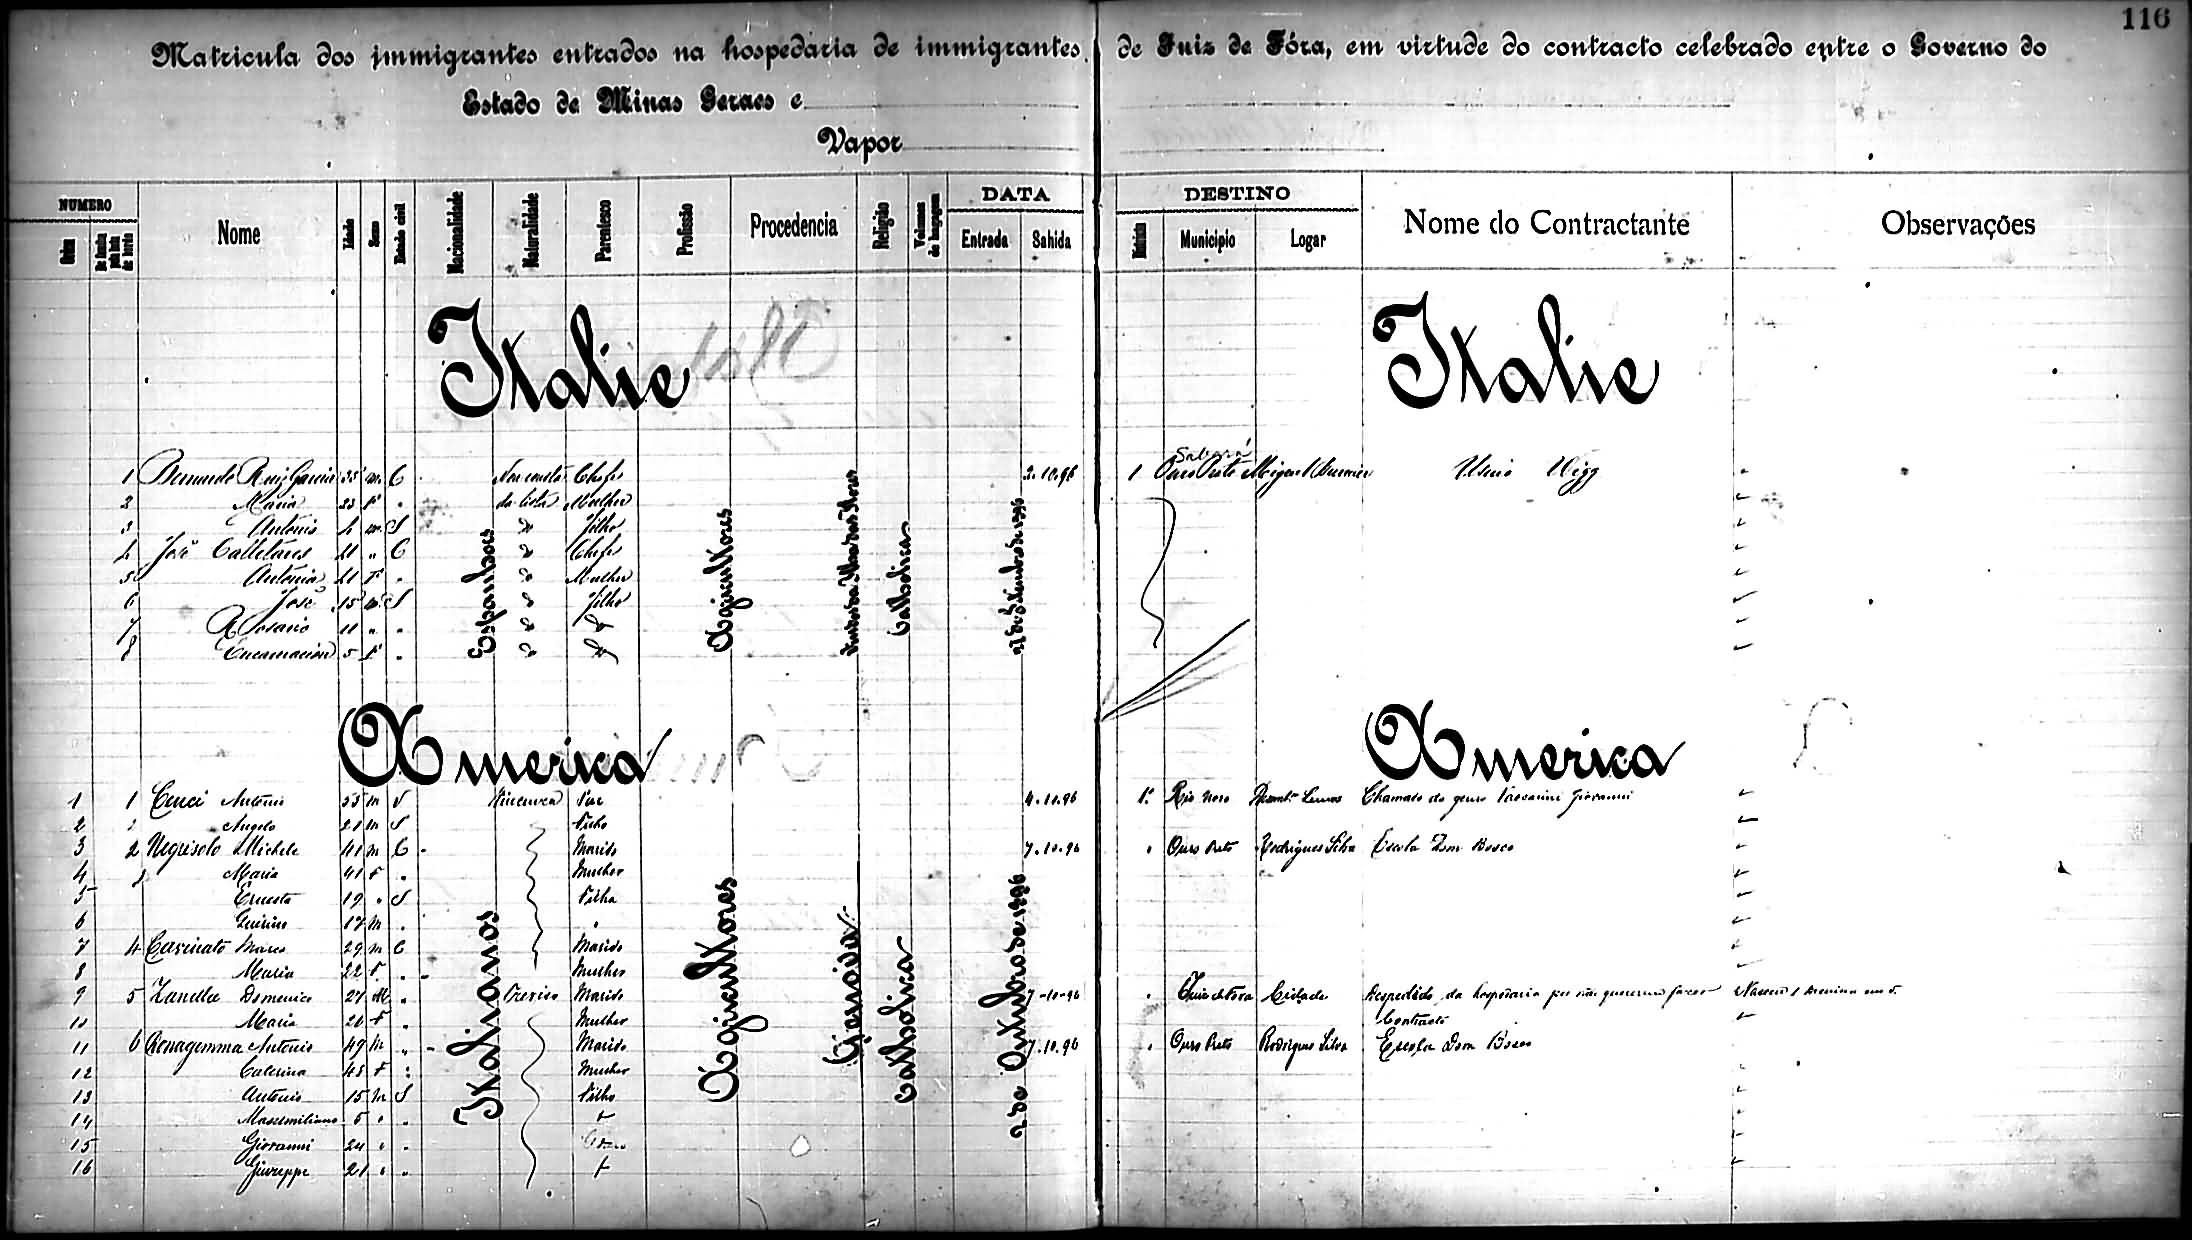 116
Matricula dos immigrantes entrados na hospedaria de immigrantes de Juiz de Fóra, em virtude do contracto celebrado entre o Governo do
Estado de Minas Geraes e
Vapor
NUMERO Nome Idade Sexo Estado civil Nacionalidade Naturalidade Parentesco Profissão Procedencia Religião Volumes de bagagem DATA Entrada Sahida DESTINO Municipio Logar Nome do Contractante Observações
Italie Italie
Espanhoes Agricultores Catholica
1 Ruiz Garcia 35 m. C Chefe 2.10.96 1 Sabará Ouro Preto Miguel Burnier Wigg
2 Maria 23 F " da lista Mulher
3 Antonio 2 m. S Filho
4 José 41 " C Chefe
5 Antonia 41 F " Mulher
6 José 15 m. S Filho
7 Rosario 11 " "
8 Encarnacion 5 F "
America America
Italianos Agricultores Genova Catholica 2 de Outubro de 1896
1 1 Cenci Antonio 55 m V Pae 4.10.96 1. Rio Novo Chamado do genro Giovanni
2 Angelo 21 m S Filho
3 2 Negrisolo Michele 41 m C Marido 7.10.96 " Ouro Preto Rodrigues Silva Escola Dom Bosco
4 Maria 41 F " Mulher
5 Ernesta 19 " S Filha
6 17 m " "
7 4 Casinato Marco 29 m C Marido
8 Maria 22 F " Mulher
9 5 Zanella Domenico 27 M " Treviso Marido 7-10-96 " Juiz de Fora Cidade Despedido da hospedaria por não quererem fazer
Contracto
10 Maria 20 F " Mulher
11 6 Antonio 49 M " Marido 7.10.96 " Ouro Preto Rodrigues Silva Escola Dom Bosco
12 Caterina 45 F " Mulher
13 Antonio 15 M S Filho
14 Massimiliano 5 " "
15 Giovanni 24 " "
16 Giuseppe 21 " "